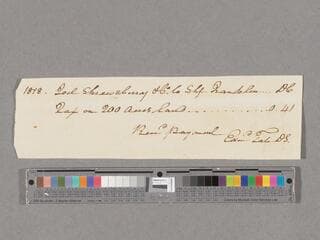 1818. Joel Shrewsbury & Co to Shff. Franklin .. Dr
Tax on 200 acres land ............ 0.41
Recd. Payment
D.S.